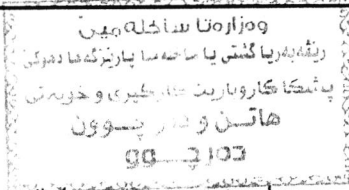 وەزارەتا ساخلەمیێ
ریڤەبەریا گشتی یا ساخلەمیا پارێزگەها دهوکێ
پشکا کاروبارێن کارگێری و خویەتی
هاتن و دەرچوون
دەرچوو